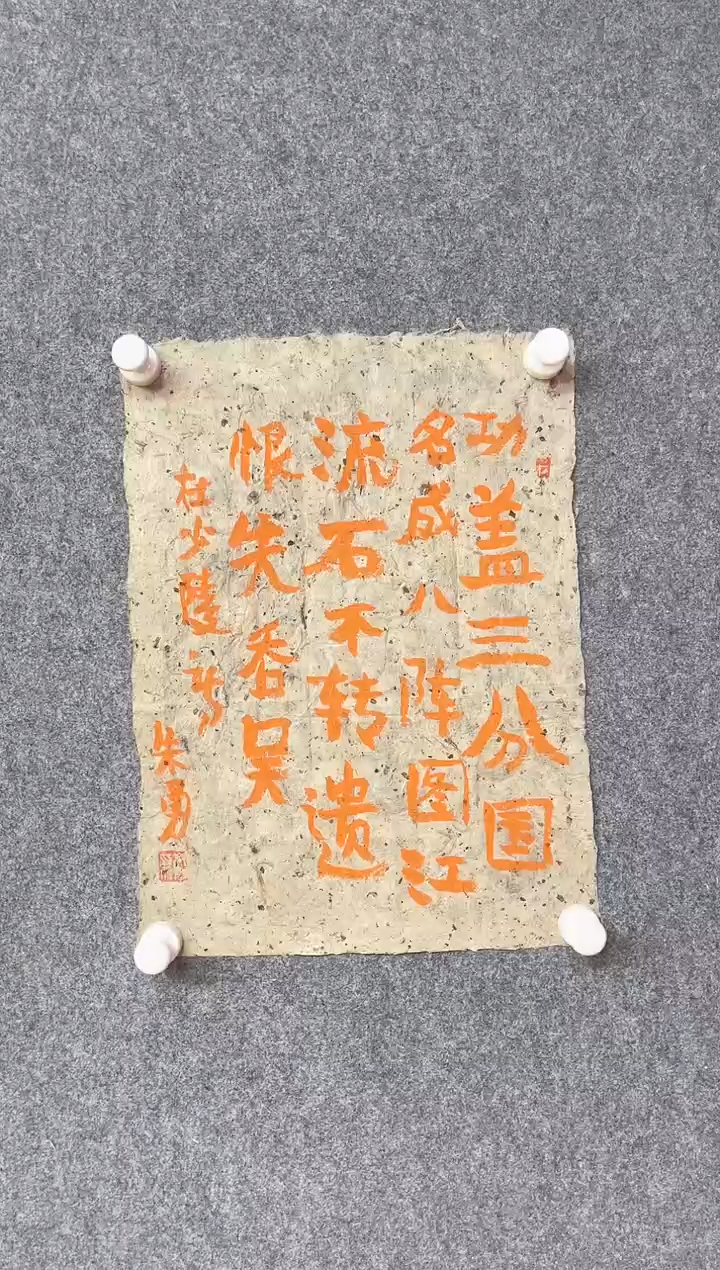 功盖三分国
名成八阵图江
流石不转遗
恨失吞吴
杜少陵诗
朱勇